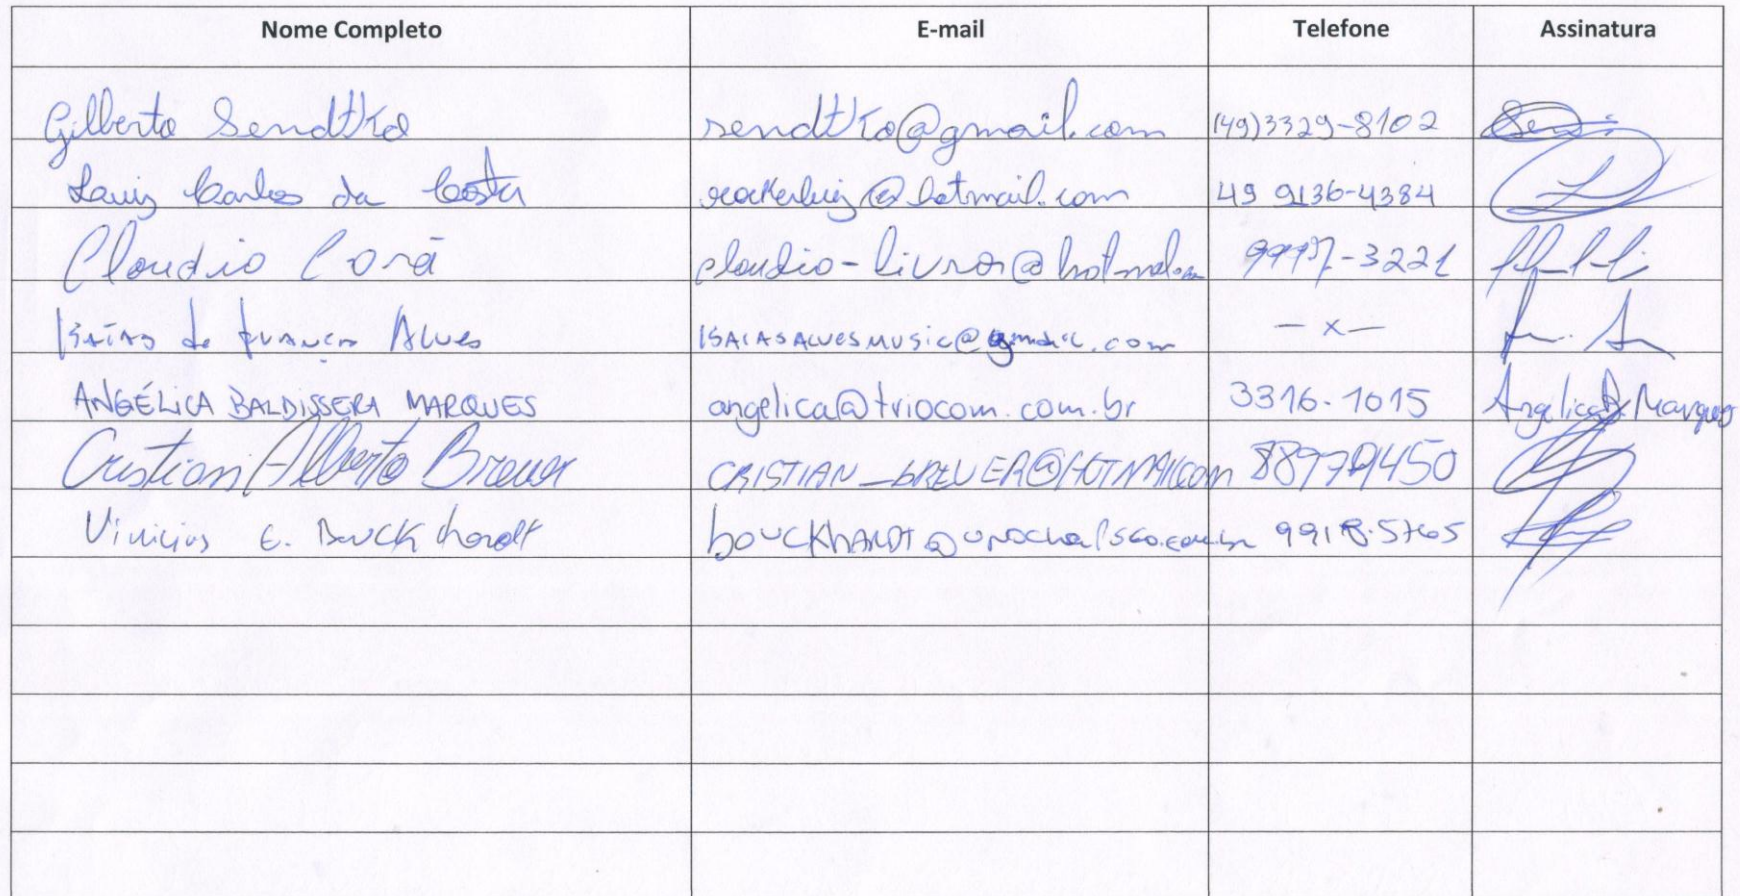 Nome Completo E-mail Telefone Assinatura
Gilberto Sendtko sendtko@gmail.com (49)3329-8102
Luiz Carlos da Costa rockerluiz@hotmail.com 49 9136-4384
Claudio Corá claudio-livros@hotmal.com -3221
Isaías de Alves ISAIASALVESMUSIC@gmail.com — x —
ANGÉLICA BALDISSERA MARQUES angelica@triocom.com.br 3316-1015 Angelica B Marques
Cristian Alberto Breuer CRISTIAN_BREUER@HOTMAIL.COM
Vinicius E. Bouckhardt